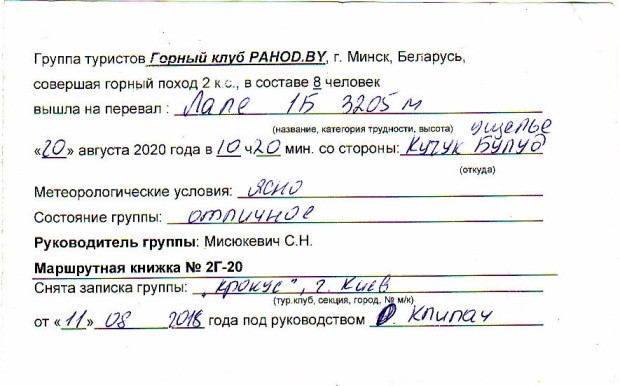 Группа туристов Горный клуб PAHOD.BY, г. Минск, Беларусь,
совершая горный поход 2 к.с., в составе 8 человек
вышла на перевал : Лапе 1Б 3205 м
(название, категория трудности, высота) ущелье
«20» августа 2020 года в 10 ч 20 мин. со стороны: Кучук
(откуда)
Метеорологические условия: ЯСНО
Состояние группы: отличное
Руководитель группы: Мисюкевич С.Н.
Маршрутная книжка № 2Г-20
Снята записка группы: „Крокус", г. Киев
(тур.клуб, секция, город, № м/к)
от «11» 08 2018 года под руководством Клипач